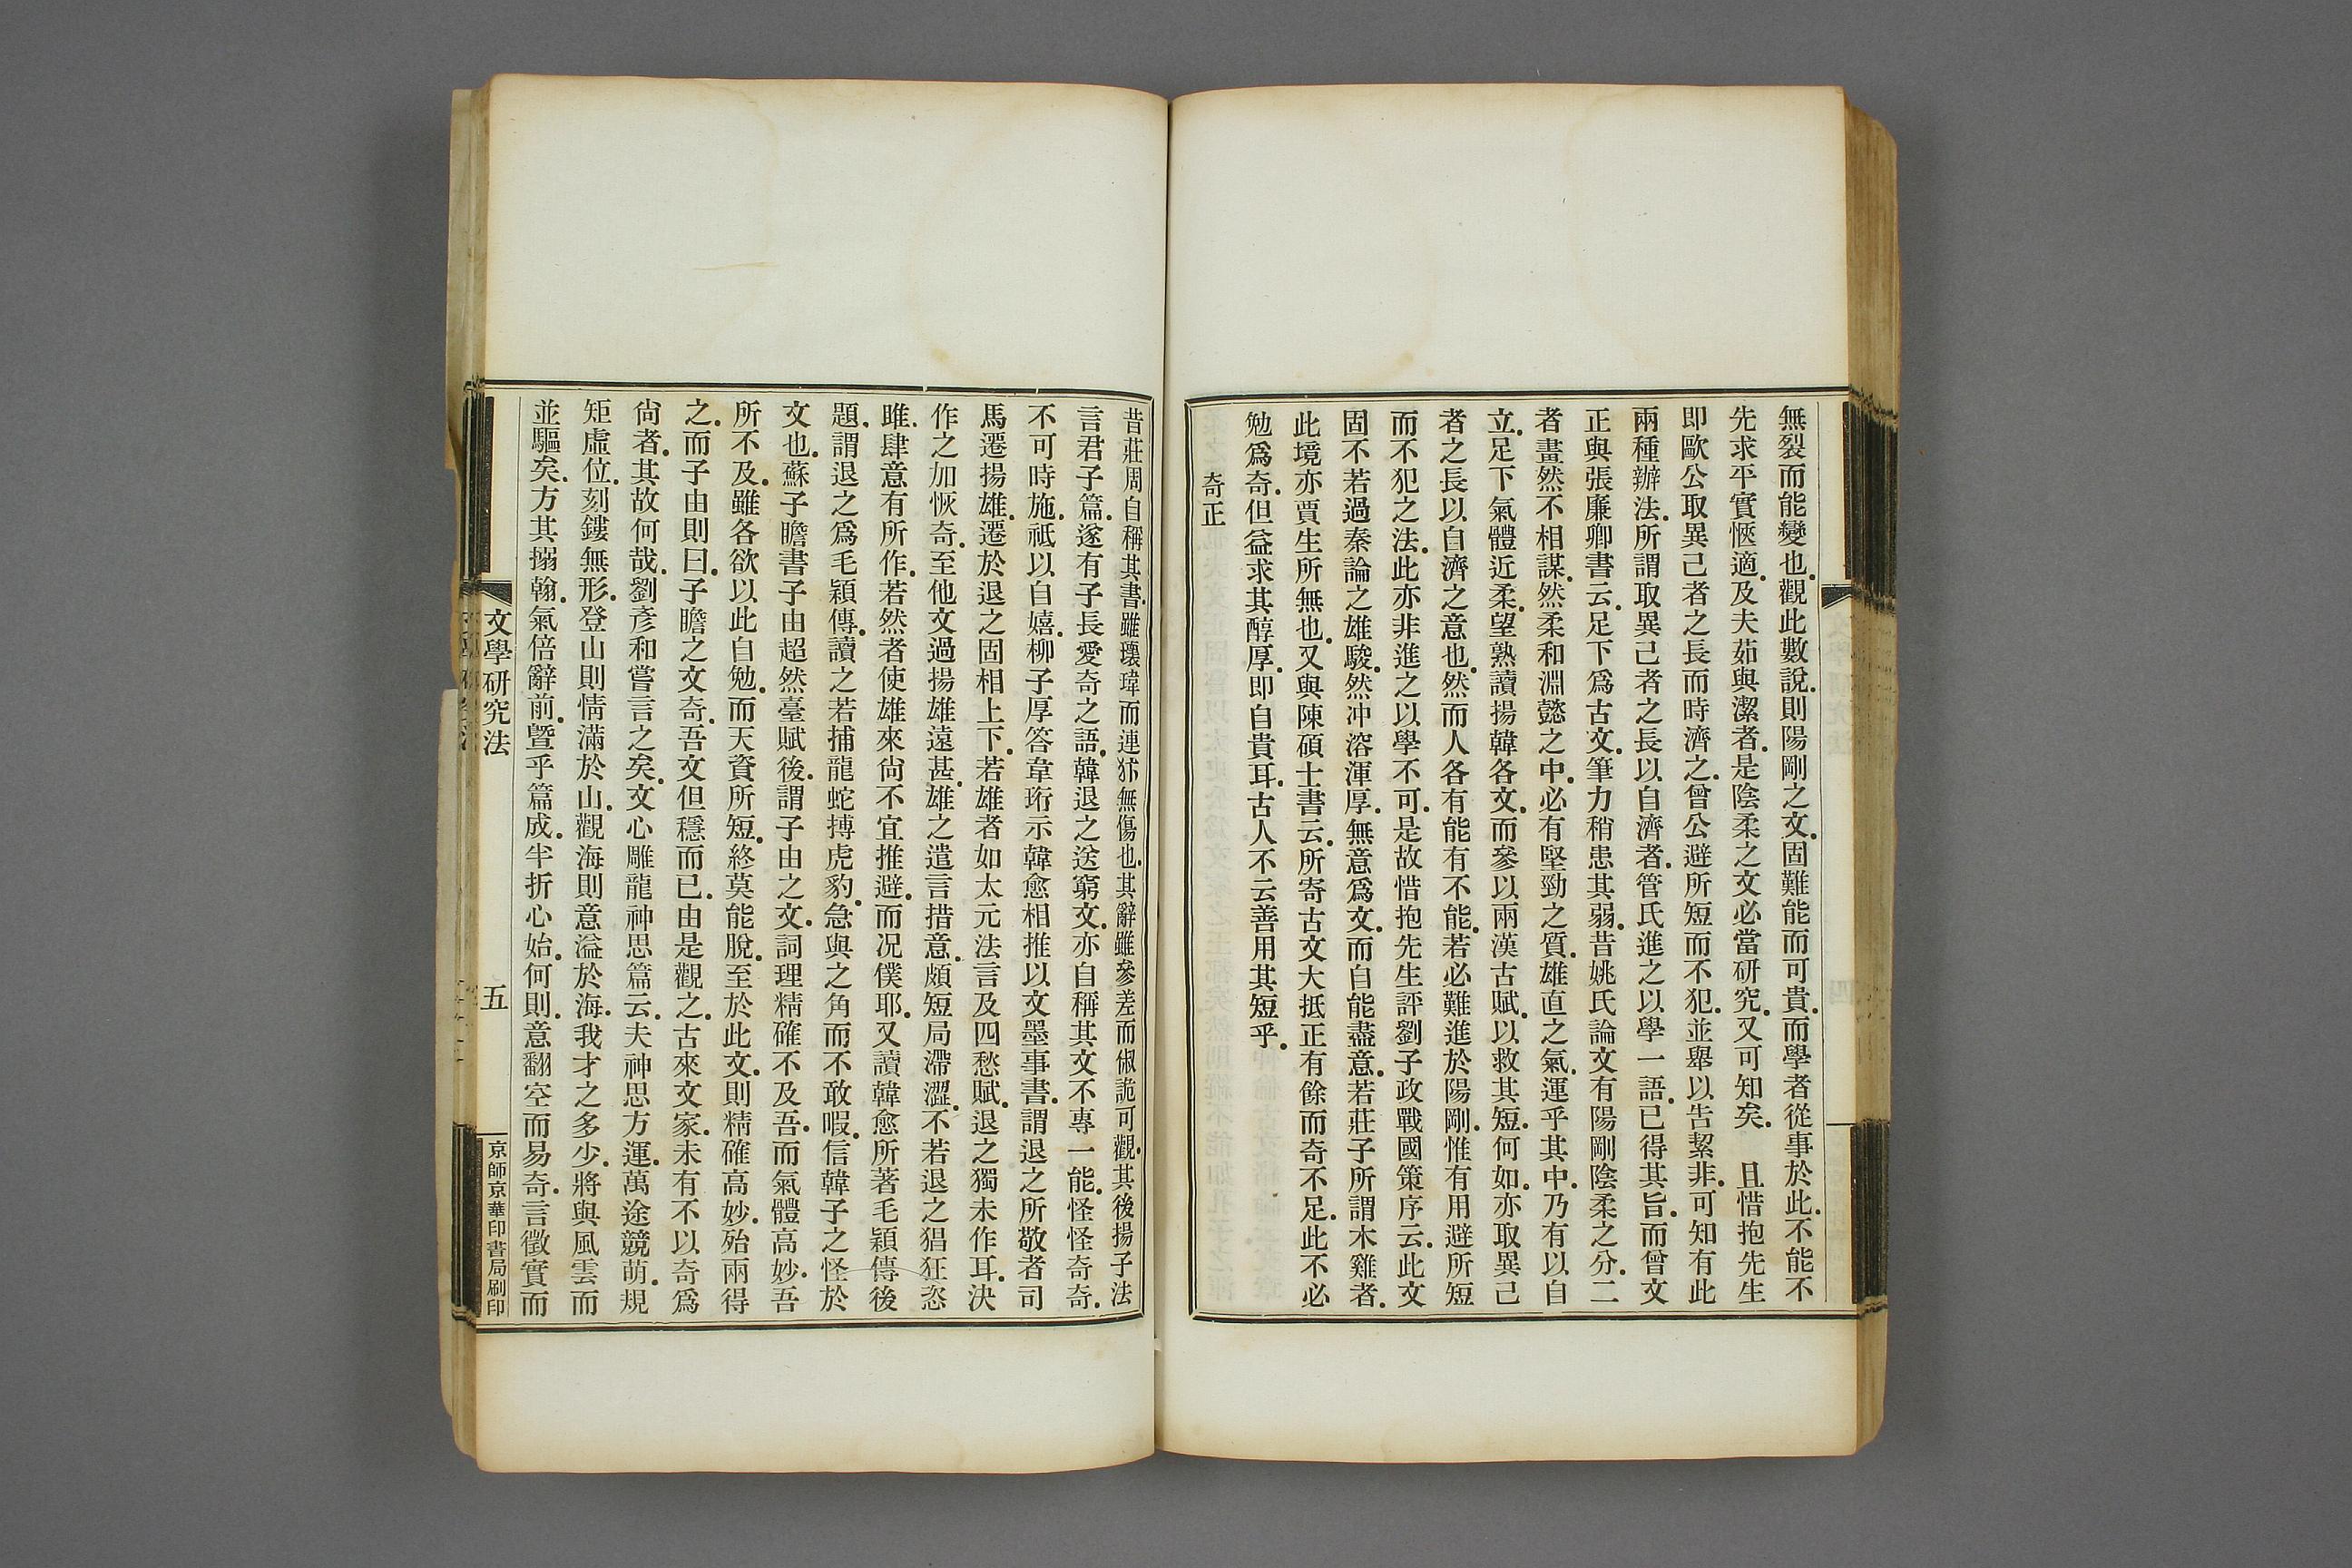 無裂而能變也.觀此數說.則陽剛之文.固難能而可貴.而學者從事於此.不能不
先求平實愜適.及夫茹與潔者.是陰柔之文必當研究.又可知矣.　且惜抱先生
即歐公取異己者之長而時濟之.曾公避所短而不犯.並舉以告絜非.可知有此
兩種辦法.所謂取異己者之長以自濟者.管氏進之以學一語.已得其旨.而曾文
正與張廉卿書云.足下爲古文.筆力稍患其弱.昔姚氏論文有陽剛陰柔之分.二
者畫然不相謀.然柔和淵懿之中.必有堅勁之質.雄直之氣.運乎其中.乃有以自
立.足下氣體近柔.望熟讀揚韓各文.而參以兩漢古賦.以救其短.何如.亦取異己
者之長以自濟之意也.然而人各有能有不能.若必難進於陽剛.惟有用避所短
而不犯之法.此亦非進之以學不可.是故惜抱先生評劉子政戰國策序云.此文
固不若過秦論之雄駿.然沖溶渾厚.無意爲文.而自能盡意.若莊子所謂木雞者.
此境亦賈生所無也.又與陳碩士書云.所寄古文大抵正有餘而奇不足.此不必
勉爲奇.但益求其醇厚.即自貴耳.古人不云善用其短乎.
奇正
昔莊周自稱其書.雖瓌瑋而連犿無傷也.其辭雖參差而俶詭可觀.其後揚子法
言君子篇.遂有子長愛奇之語.韓退之送窮文.亦自稱其文不專一能.怪怪奇奇.
不可時施.祇以自嬉.柳子厚答韋珩示韓愈相推以文墨事書.謂退之所敬者司
馬遷揚雄.遷於退之固相上下.若雄者如太元法言及四愁賦.退之獨未作耳.決
作之加恢奇.至他文過揚雄遠甚.雄之遣言措意.頗短局滯澀.不若退之猖狂恣
雎.肆意有所作.若然者使雄來尙不宜推避.而况僕耶.又讀韓愈所著毛穎傳後
題.謂退之爲毛穎傳.讀之若捕龍蛇搏虎豹.急與之角而不敢暇.信韓子之怪於
文也.蘇子瞻書子由超然臺賦後.謂子由之文.詞理精確不及吾.而氣體高妙.吾
所不及.雖各欲以此自勉.而天資所短.終莫能脫.至於此文.則精確高妙.殆兩得
之.而子由則曰.子瞻之文奇.吾文但穩而已.由是觀之.古來文家.未有不以奇爲
尙者.其故何哉.劉彥和嘗言之矣.文心雕龍神思篇云.夫神思方運.萬途競萌.規
矩虛位.刻鏤無形.登山則情滿於山.觀海則意溢於海.我才之多少.將與風雲而
並驅矣.方其搦翰.氣倍辭前.曁乎篇成.半折心始.何則.意翻空而易奇.言徵實而
文學研究法
五
京師京華印書局刷印